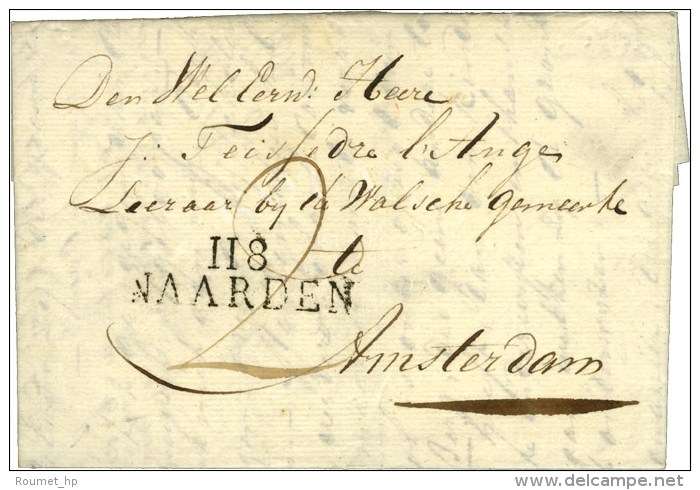 Den Wel Eerw: Heere
J: Teissedre l'Ange
Leeraar by de Walsche gemeente
te
2
118
NAARDEN
Amsterdam
© Roumet_hp
delcampe.net